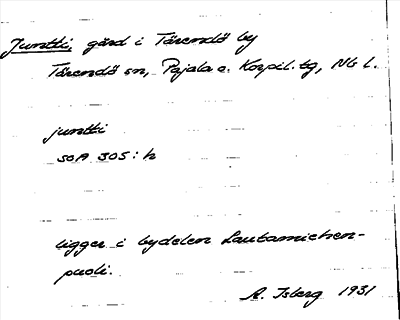 Juntti, gård i Tärendö by
Tärendö sn, Pajala o. Korpil. tg, Nb l.
juntti
SOA 305: h
ligger i bydelen Lautamiehen-
puoli.
A. Isberg 1931